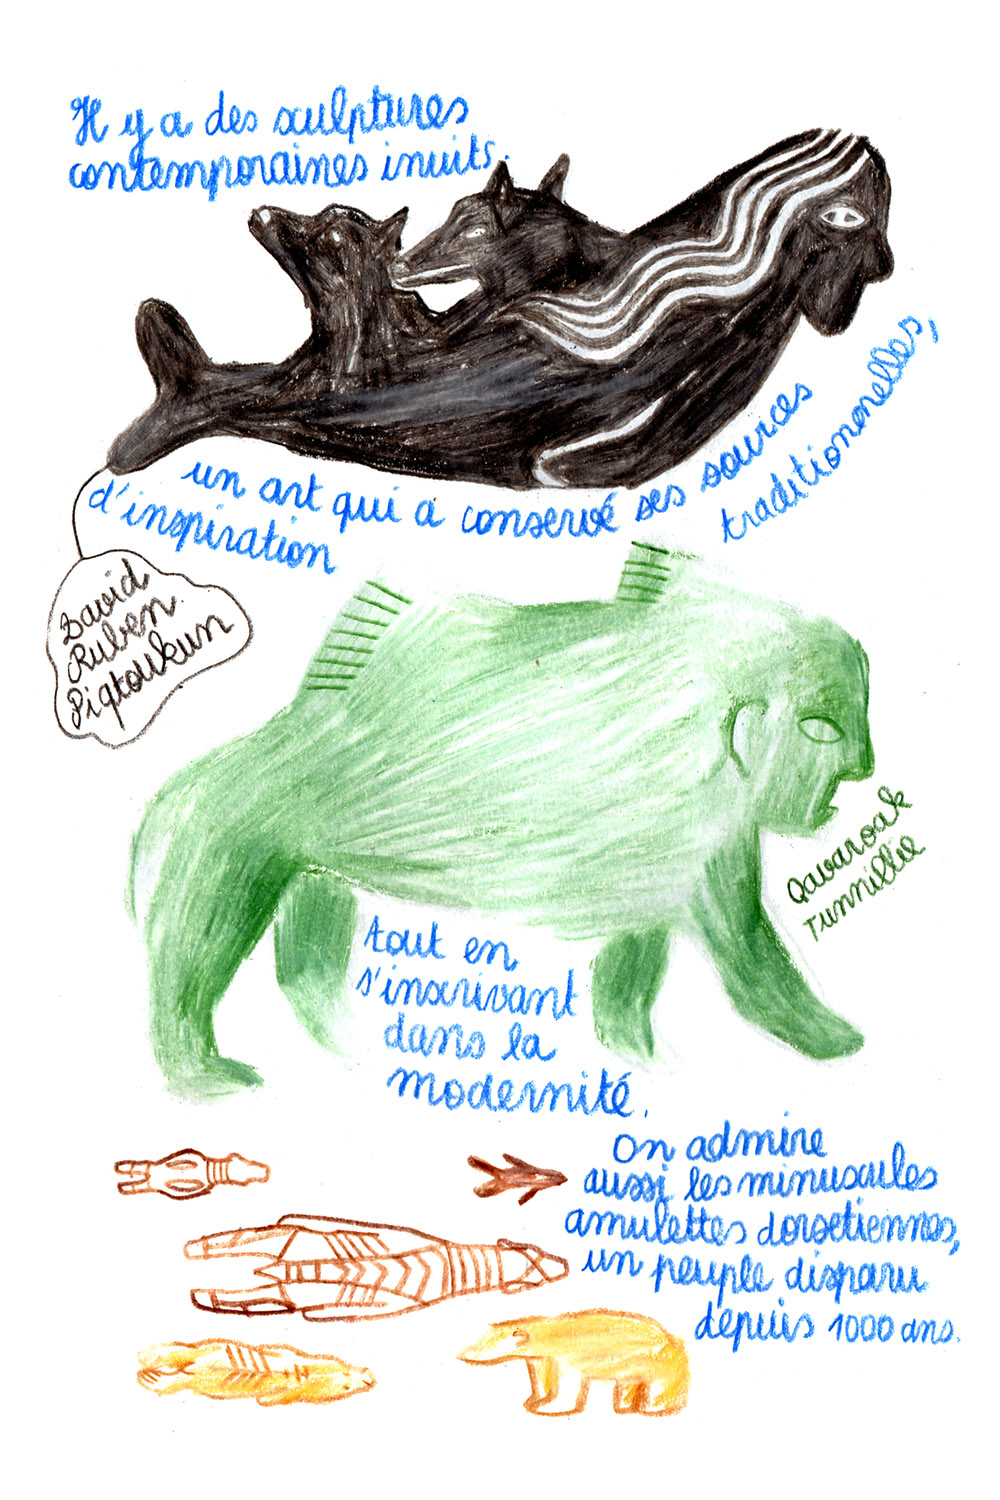 Il y a des sculptures
contemporaines inuits.
un art qui a conservé ses sources
d'inspiration
traditiononelles,
David
Ruben
Piqtoukun
Qavaroak
Tunnillie
tout en
s'inscrivant
dans la
modernité.
On admire
aussi les minuscules
amulettes dorsetiennes,
un peuple disparu
depuis 1000 ans.